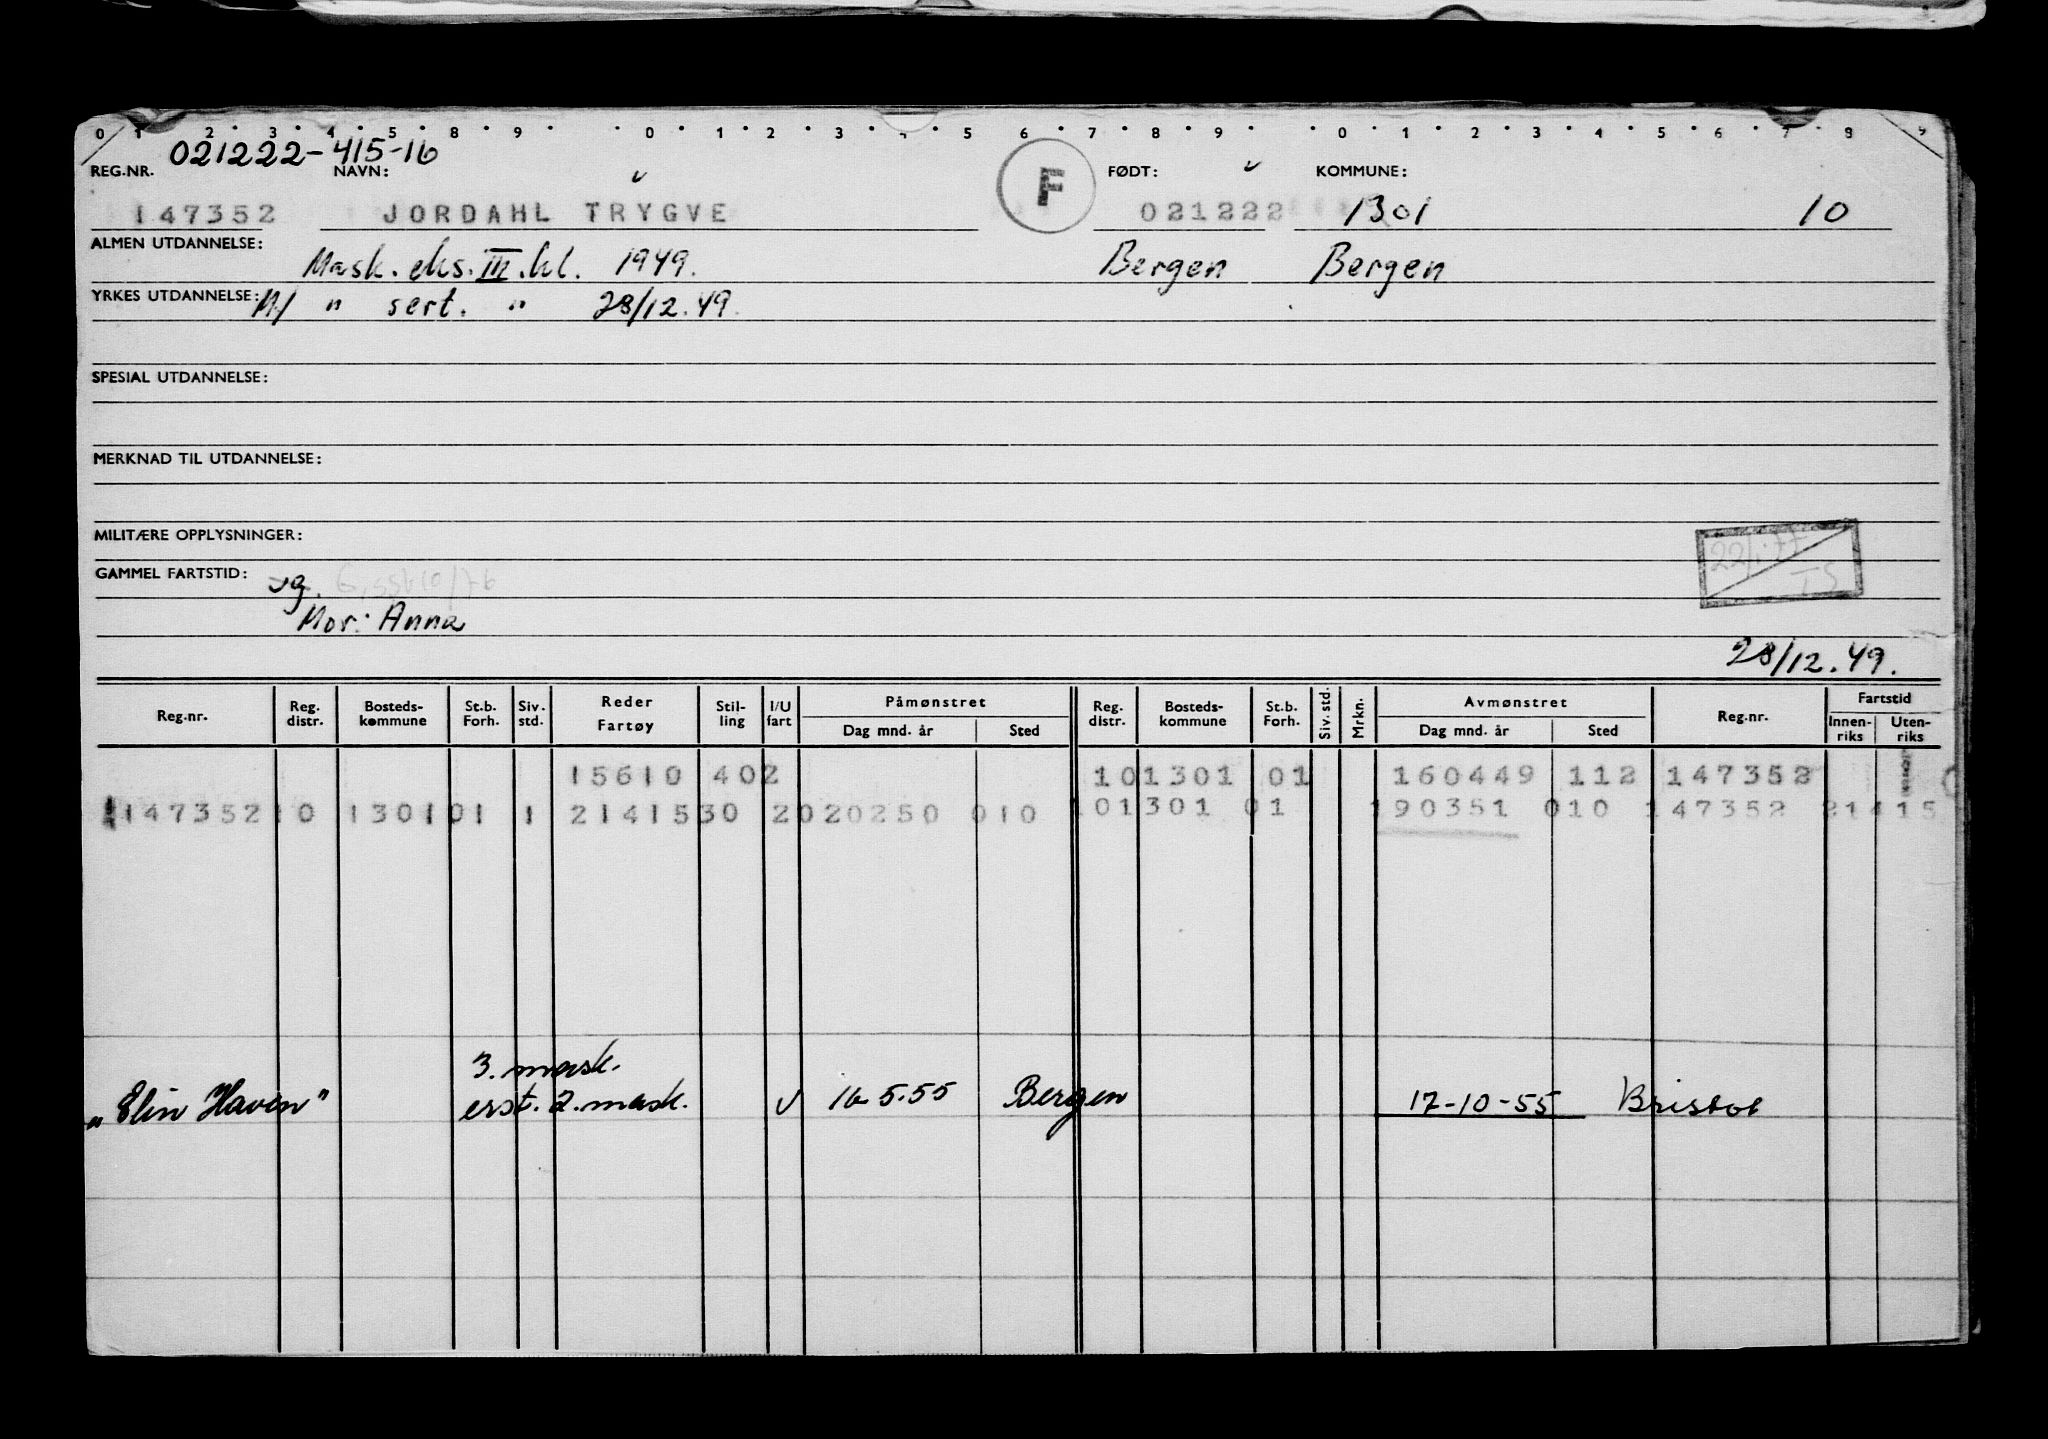 0 1 2 3 4 5 8 9 0 1 2 3 4 5 6 7 8 9 0 1 2 3 4 5 6 7 8 9
021222-415-16
REG.NR. NAVN: FØDT: KOMMUNE:
F
147352 JORDAHL TRYGVE 021222 1301 10
ALMEN UTDANNELSE: Mask. eks. III. kl. 1949. Bergen Bergen
YRKES UTDANNELSE: M/ " sert. " 28/12.49.
SPESIAL UTDANNELSE:
MERKNAD TIL UTDANNELSE:
MILITÆRE OPPLYSNINGER:
GAMMEL FARTSTID:
Mor: Anna
28/12.49.
Reg.nr. Reg. distr. Bosteds-kommune St.b. Forh. Siv. std. Reder Fartøy Stil-ling I/U fart Påmønstret Dag mnd. år Sted Reg. distr. Bosteds-kommune St.b. Forh. Siv. std. Mrkn. Avmønstret Dag mnd. år Sted Reg.nr. Fartstid Innen-riks Uten-riks
15610 402 101301 01 160449 112 147352
147352 10 1301 01 1 21415 30 2 020250 010 101301 01 190351 010 147352 21415
3. mask.
"Elin Haven" erst. 2. mask. U 16-5-55 Bergen 17-10-55 Bristol